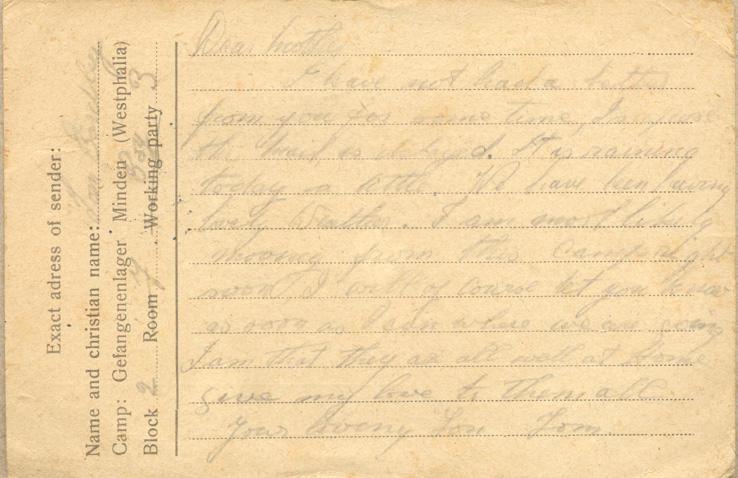 Exact adress of sender:
Name and christian name: Tom
Camp: Gefangenenlager Minden (Westphalia)
Block 2 Room 7 Working party 3
Dear Mother
I have not had a letter
from you for some time, I suppose
the mail is delayed. It is raining
today a little. We have been having
lovely weather. I am most likely
moving from this camp right
soon, I will of course let you know
as soon as I can where we are going
I am that they are all well at Home
give my love to them all
Your loving Son Tom